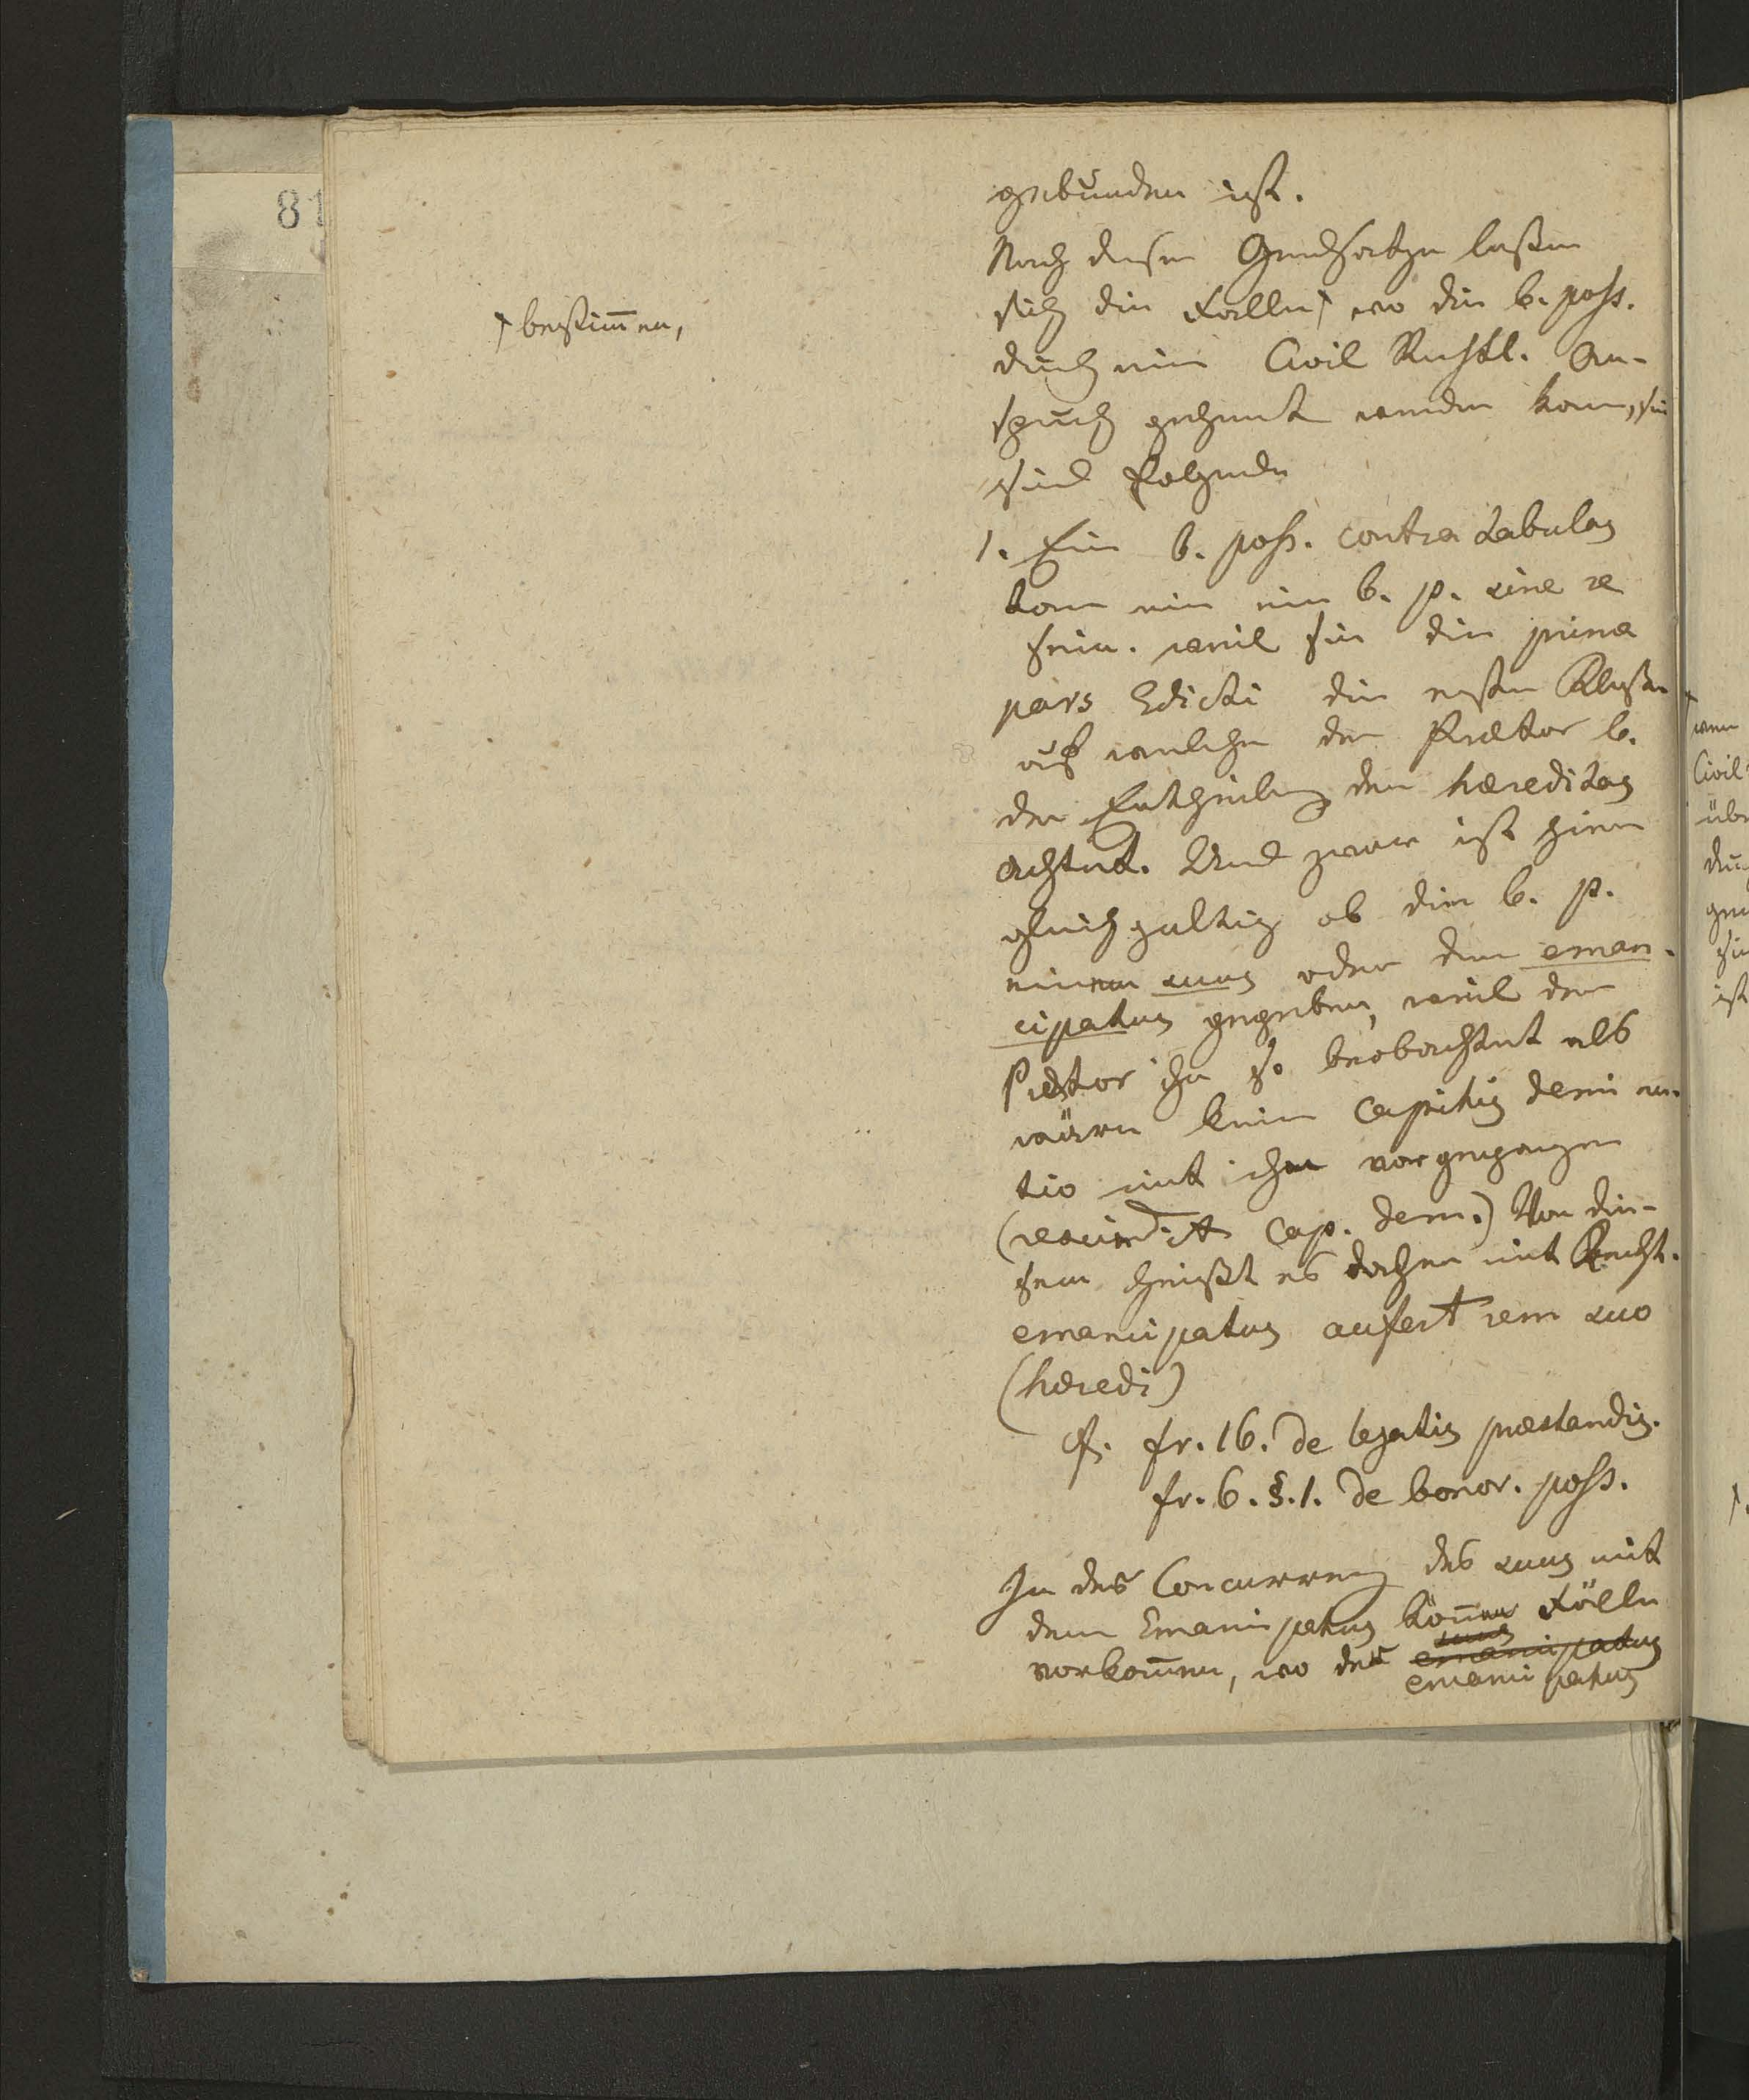 81
gebunden ist.
Nach diesen Grundsatze laßen
sich die Falle, wo die b. poss.
bestim̅en,
durch ein Civil Rechtl. An-
spruch gehemt werden kann, sie
sind folgende
1. Eine b. poss. contra tabulas
kann nie eine b. p. sine re
sein. weil sie die prima
pars Edicti die ersten Klaßen
auf welche der Prætor b.
der Ertheilung der hæreditas
achtet. Und zwar ist hier
gleichgultig ob die b. p.
einem suus oder dem eman-
cipatus gegeben, weil der
Prætor ihn so beobachtet als
wäre keine capitis demi nu-
tio mit ihm vorgegangen
(rescindit cap. dem.) Von die-
sem heißt es daher mit Recht.
emancipatus aufert rem suo
(hæredi)
cf. fr. 16. de legatis præstandis.
fr. 6. §. 1. de bonor. poss.
In der Concurrenz des suus mit
dem Emancipatus kön̅en Fälle
vorkom̅en, wo der emancipatus
suus
emancipatus
Civil
ist